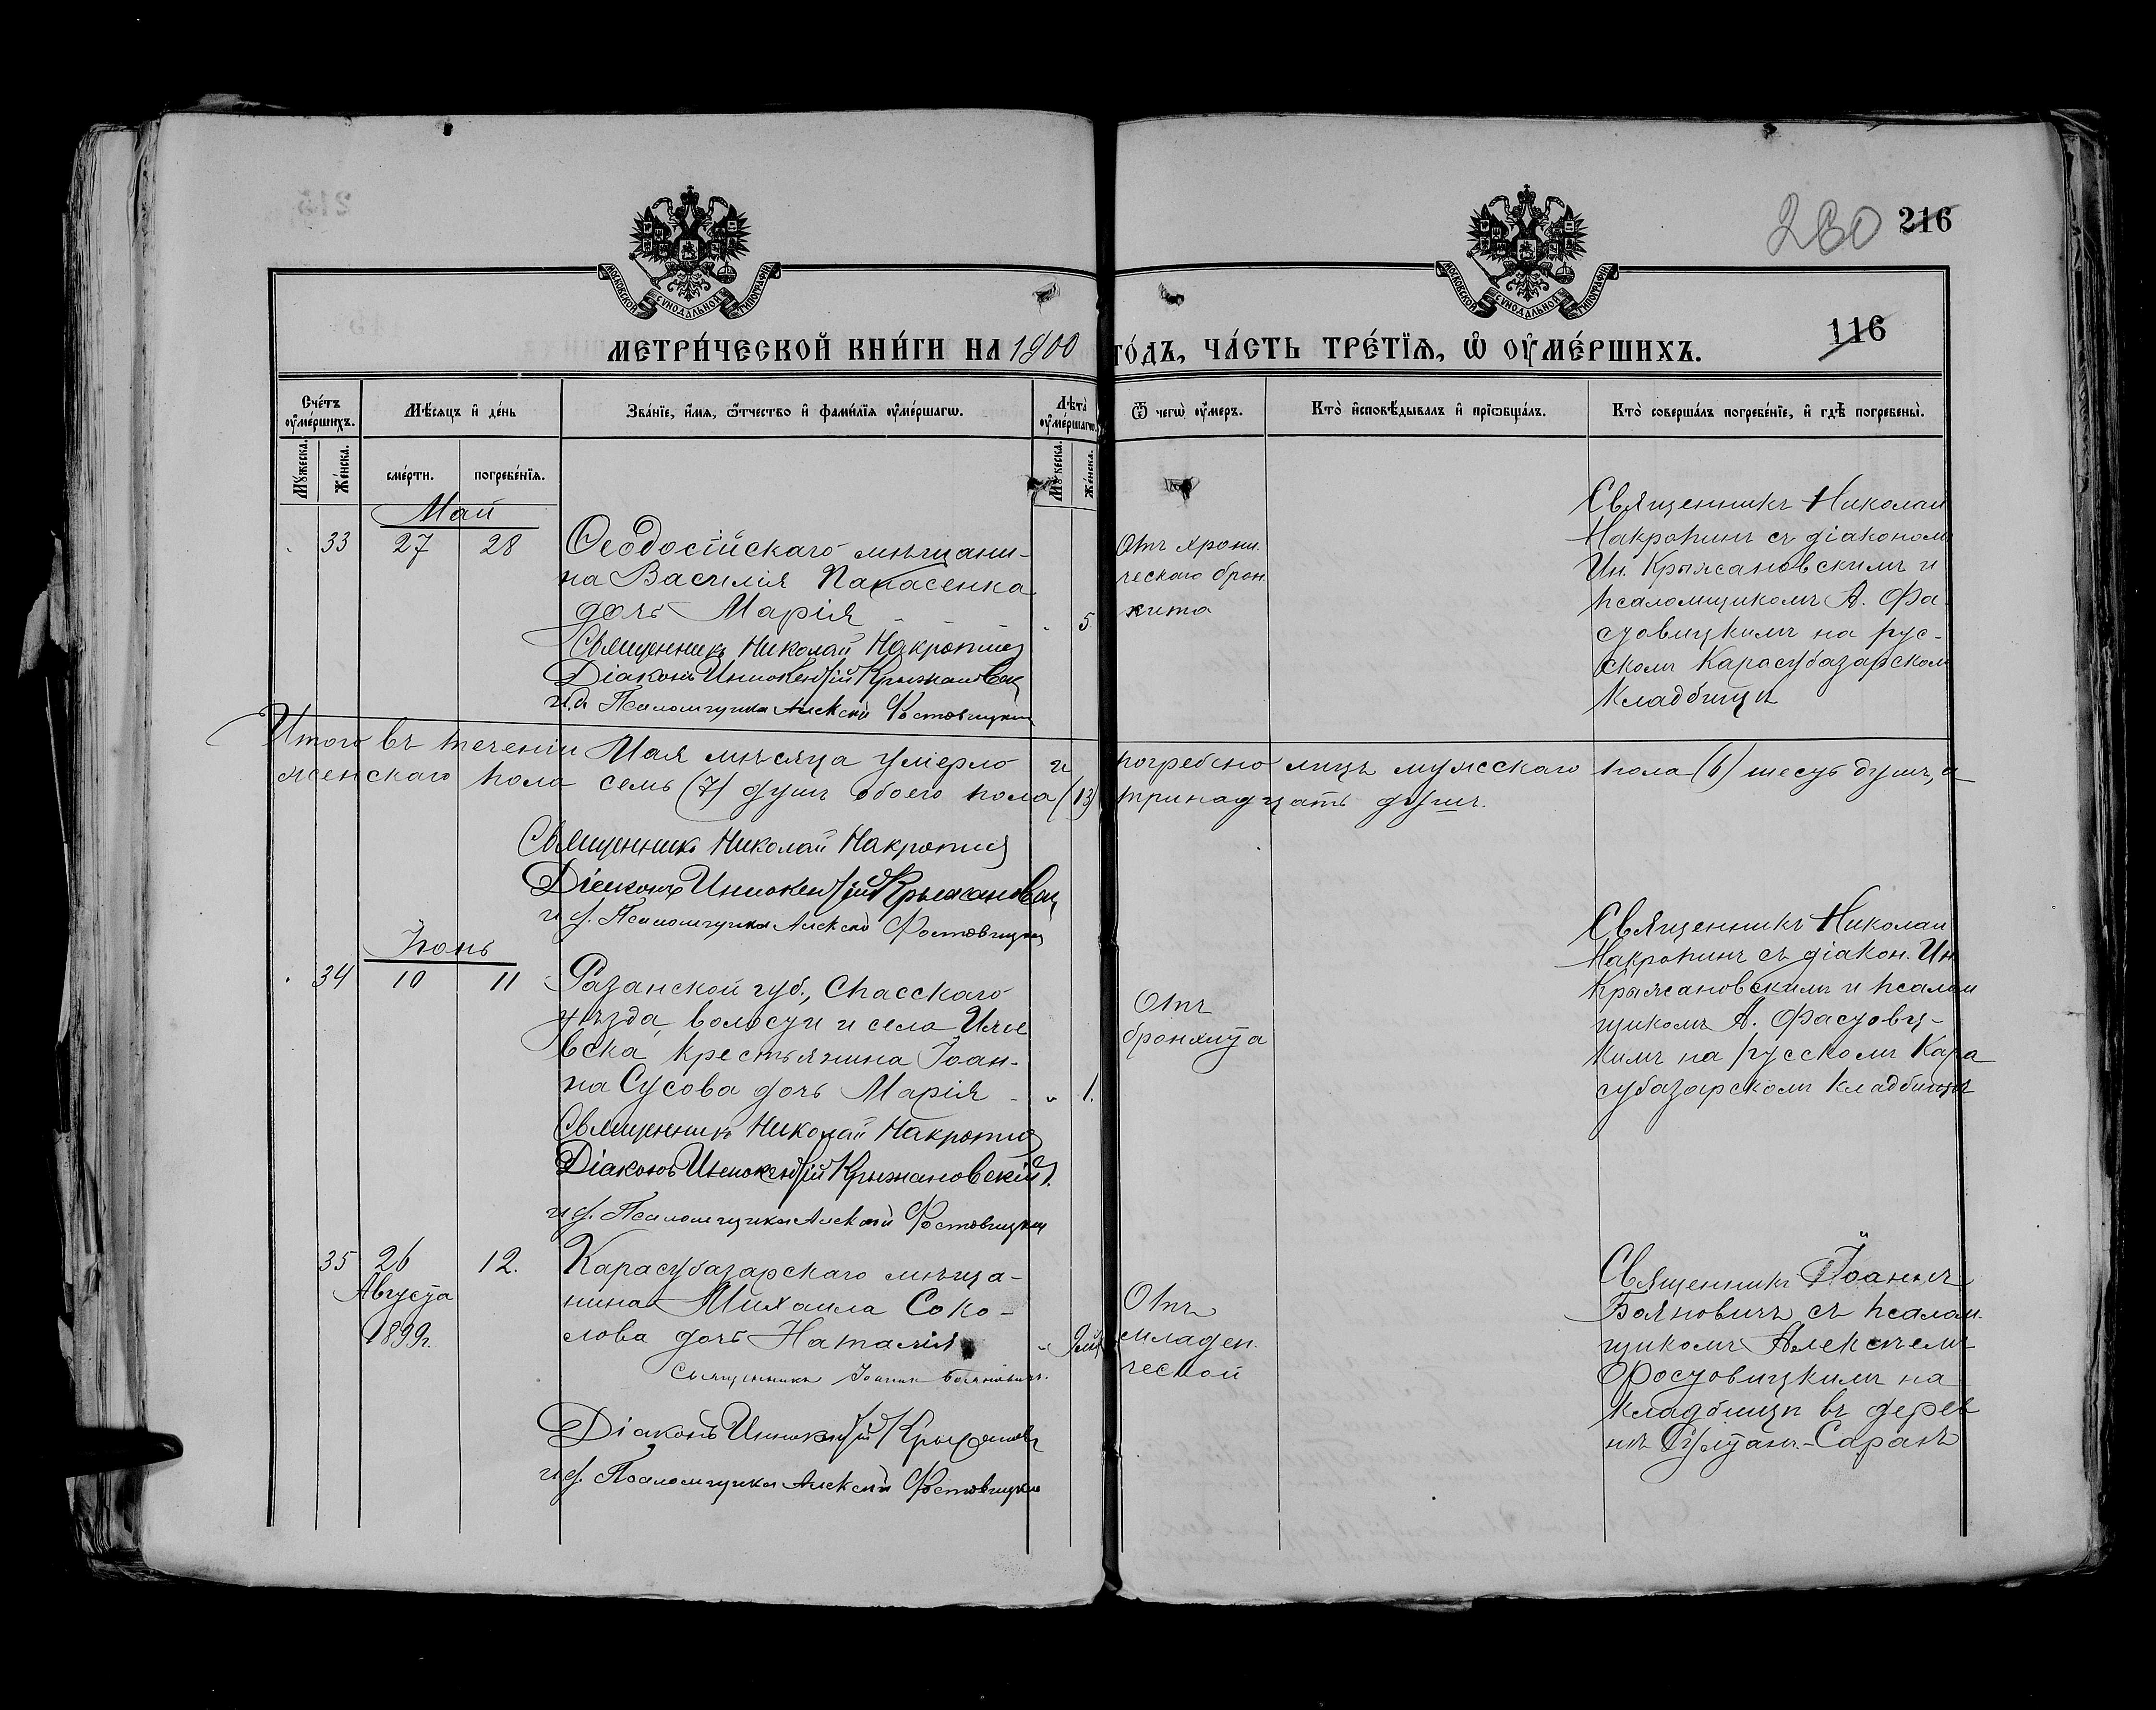 МОСКОВСКОЙ СУНОДАЛЬНОЙ ТИПОГРАФІИ
МОСКОВСКОЙ СУНОДАЛЬНОЙ ТИПОГРАФІИ
280 216
116
МЕТРИ́ЧЕСКОЙ КНИ́ГИ НА 1900 ГО́ДЪ, ЧА́СТЬ ТРЕ́ТІЯ, Ѡ ОУМЕ́РШИХЪ.
Сче́тъ оуме́ршихъ.
Мѣ́сяцъ и де́нь
Зва́ніе, и́мя, ѿтчество и фами́лія оуме́ршагѡ.
Лѣта̀ оуме́ршагѡ.
Ѿ чегѡ̀ оу́меръ.
Кто̀ исповѣ́дывалъ и пріѡбща́лъ.
Кто̀ соверша́лъ погребе́ніе, и гдѣ̀ погребены̀.
Му́жеска.
Же́нска.
сме́рти.
погребе́нія.
Му́жеска.
Же́нска.
Май
33 27 28
Ѳеодосійскаго мѣщани-
на Василія Папасенка
дочь Марія 5
Священникъ Николай Накропинъ
Діаконъ Иннокентій Крыжановск
и.д. Псаломщика Алексій Фостовицкій
Отъ хрони-
ческаго брон-
хита
Священникъ Николай
Накропинъ съ діакономъ
Ин. Крыжановскимъ и
псаломщикомъ А. Фо-
стовицкимъ на рус-
скомъ Карасубазарскомъ
кладбищѣ
Итого въ теченіи Мая мѣсяца умерло и погребено лицъ мужескаго пола (6) шесть душъ, а
женскаго пола семь (7) душъ обоего пола (13) тринадцать душъ.
Священникъ Николай Накропинъ
Діаконъ Иннокентій Крыжановск
и.д. Псаломщика Алексій Фостовицкій
Іюнь
34 10 11
Рязанской губ., Спасскаго
уѣзда, волости и села Иже
вска крестьянина Іоан-
на Сусова дочь Марія - " 1.
Священникъ Николай Накропинъ
Діаконъ Иннокентій Крыжановскій
и.д. Псаломщика Алексій Фостовицкій
Отъ
бронхита
Священникъ Николай
Накропинъ съ діакон. Ин.
Крыжановскимъ и псалом
щикомъ А. Фостовиц-
кимъ на русскомъ Кара
субазарскомъ кладбищѣ
35 26 12.
Августа
1899г.
Карасубазарскаго мѣща-
нина Михаила Соко-
лова дочь Наталія " 9 мѣ
Священникъ Іоаннъ Бояновичъ.
Діаконъ Иннокентій Крыжановск
и.д. Псаломщика Алексій Фостовицкій
Отъ
младен.
ческой
Священникъ Іоаннъ
Бояновичъ съ псалом-
щикомъ Алексѣемъ
Фостовицкимъ на
кладбищѣ въ дерев
нѣ Султанъ-Сараѣ